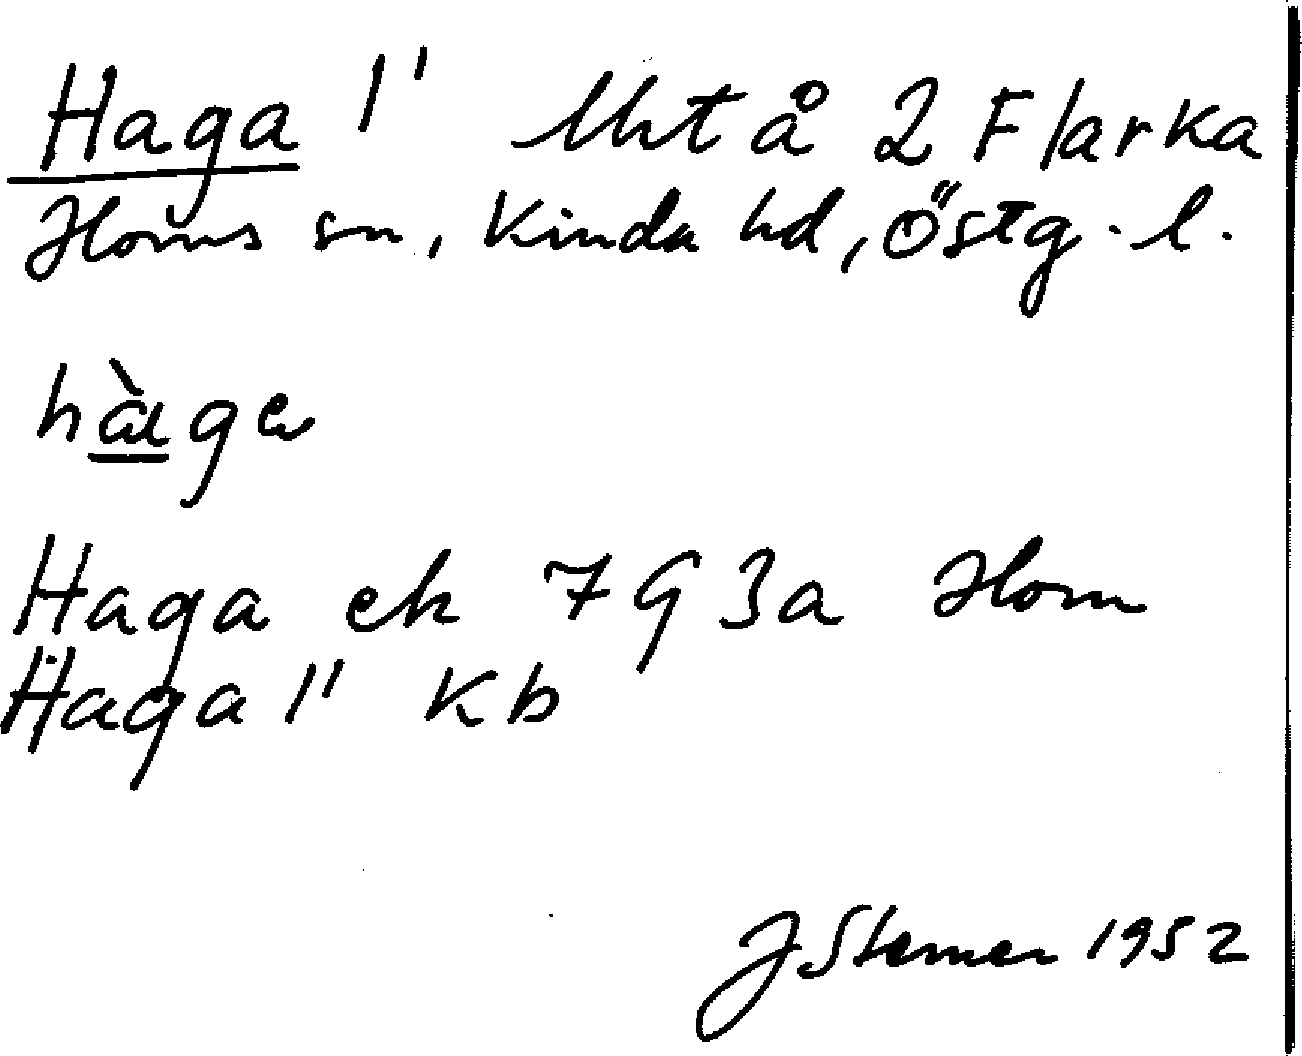 Haga 1' lht å 2 Flarka
Horns sn, Kinda hd, Östg. l.
hàga
Haga ek 7 G 3a Horn
Haga 1' kb
J Sterner 1952